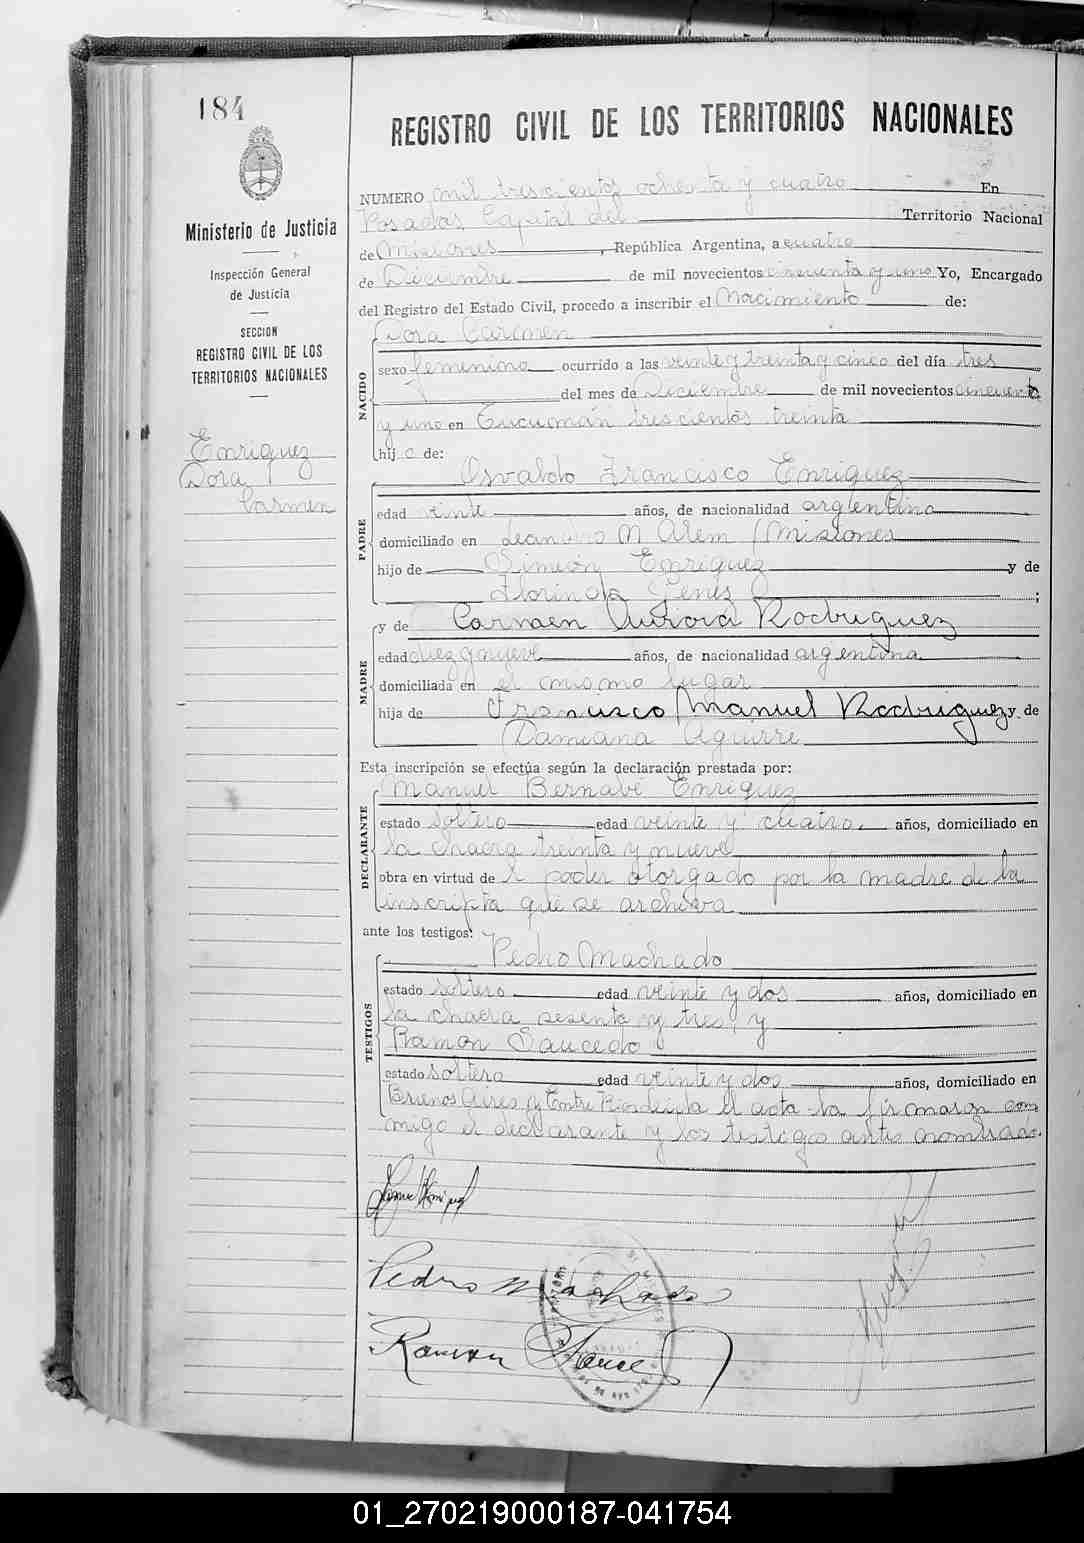 184
REGISTRO CIVIL DE LOS TERRITORIOS NACIONALES
Ministerio de Justicia
Inspección General
de Justicia
SECCION
REGISTRO CIVIL DE LOS
TERRITORIOS NACIONALES
Enriquez
Dora
Carmen
NUMERO mil trescientos ochenta y cuatro En
Posadas, Capital del Territorio Nacional
de Misiones, República Argentina, a cuatro
de Diciembre de mil novecientos cincuenta y uno Yo, Encargado
del Registro del Estado Civil, procedo a inscribir el Nacimiento de:
NACIDO
Dora Carmen
sexo femenino ocurrido a las veinte y treinta y cinco del día tres
del mes de Diciembre de mil novecientos cincuenta
y uno en Tucumán trescientos treinta
hija de:
PADRE
Osvaldo Francisco Enriquez
edad veinte años, de nacionalidad argentina
domiciliado en Leandro N Alem (Misiones
hijo de Simeón Enriquez y de
Florinda Genes;
MADRE
y de Carmen Aurora Rodriguez
edad diez y nueve años, de nacionalidad argentina
domiciliada en el mismo lugar
hija de Francisco Manuel Rodriguez y de
Damiana Aguirre
Esta inscripción se efectúa según la declaración prestada por:
DECLARANTE
Manuel Bernabé Enriquez
estado soltero edad veinte y cuatro, años, domiciliado en
la chacra treinta y nueve
obra en virtud del poder otorgado por la madre de la
inscripta que se archiva
ante los testigos:
TESTIGOS
Pedro Machado
estado soltero edad veinte y dos años, domiciliado en
la chacra sesenta y tres, y
Ramon Saucedo
estado soltero edad veinte y dos años, domiciliado en
Buenos Aires y Entre Rios leida el acta la firmaron con
migo el declarante y los testigos antes nombrados.
Pedro Machado
Ramon
01_270219000187-041754